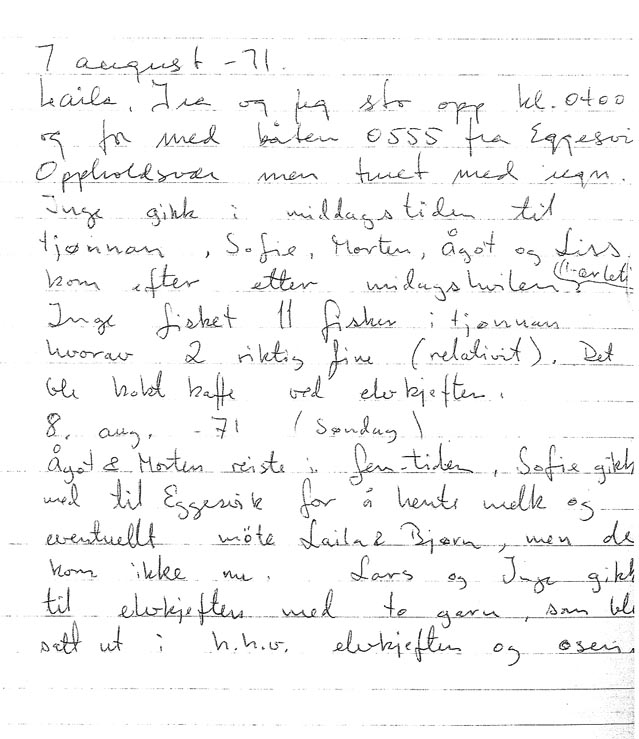 7 august - 71.
Laila, Ina og jeg sto opp kl. 0400
og for med båten 0555 fra Eggesvi
Oppholdsvær men truet med regn.
Inge gikk i middagstiden til
tjønnan, Sofie, Morten, Ågot og Liss
kom efter etter midagshvilen.
Inge fisket 11 fisker i tjønnan
hvorav 2 riktig fine (relativit). Det
ble kokt kaffe ved elvkjeften.
8. aug. - 71 (Søndag)
Ågot & Morten reiste i fem-tiden, Sofie gikk
med til Eggesvik for å hente melk og
eventuellt möte Laila & Bjørn, men de
kom ikke nu. Lars og Inge gikk
til elvkjeften med to garn, som ble
satt ut i h.h.v. elvkjeften og osen.